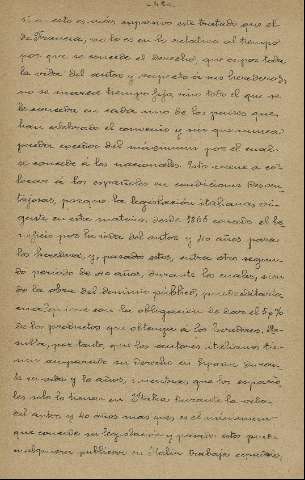 -48-
si en esto es más expresivo este tratado que el
de Francia, no lo es en lo relativo al tiempo
por que se concede el derecho, que es por toda
la vida del autor y respecto á sus herederos,
no se marca tiempo fijo, sino todo el que se
le conceda en cada uno de los países que
han celebrado el convenio y sin que nunca
pueda exceder del mínimum por el cual
se concede á los nacionales. Esto viene a co-
locar á los españoles en condiciones desven-
tajosas, porque la legislación italiana vi-
gente en esta materia, desde 1865 concede el be-
neficio por la vida del autor y 40 años para
los herederos, y, pasados estos, entra otro segun-
do periodo de 40 años, durante los cuales, sien-
do la obra del dominio público, puede editarla
cualquiera con la obligación de dar el 5 p%
de los productos que obtenga á los herederos. Re-
sulta, por tanto, que los autores italianos tie-
nen amparado su derecho en España duran-
te su vida y 40 años, mientras que los españo-
les solo lo tienen en Italia durante la vida
del autor y 40 años mas que es el mínimum
que concede su legislación y pasados estos puede
cualquiera publicar en Italia trabajos españoles,